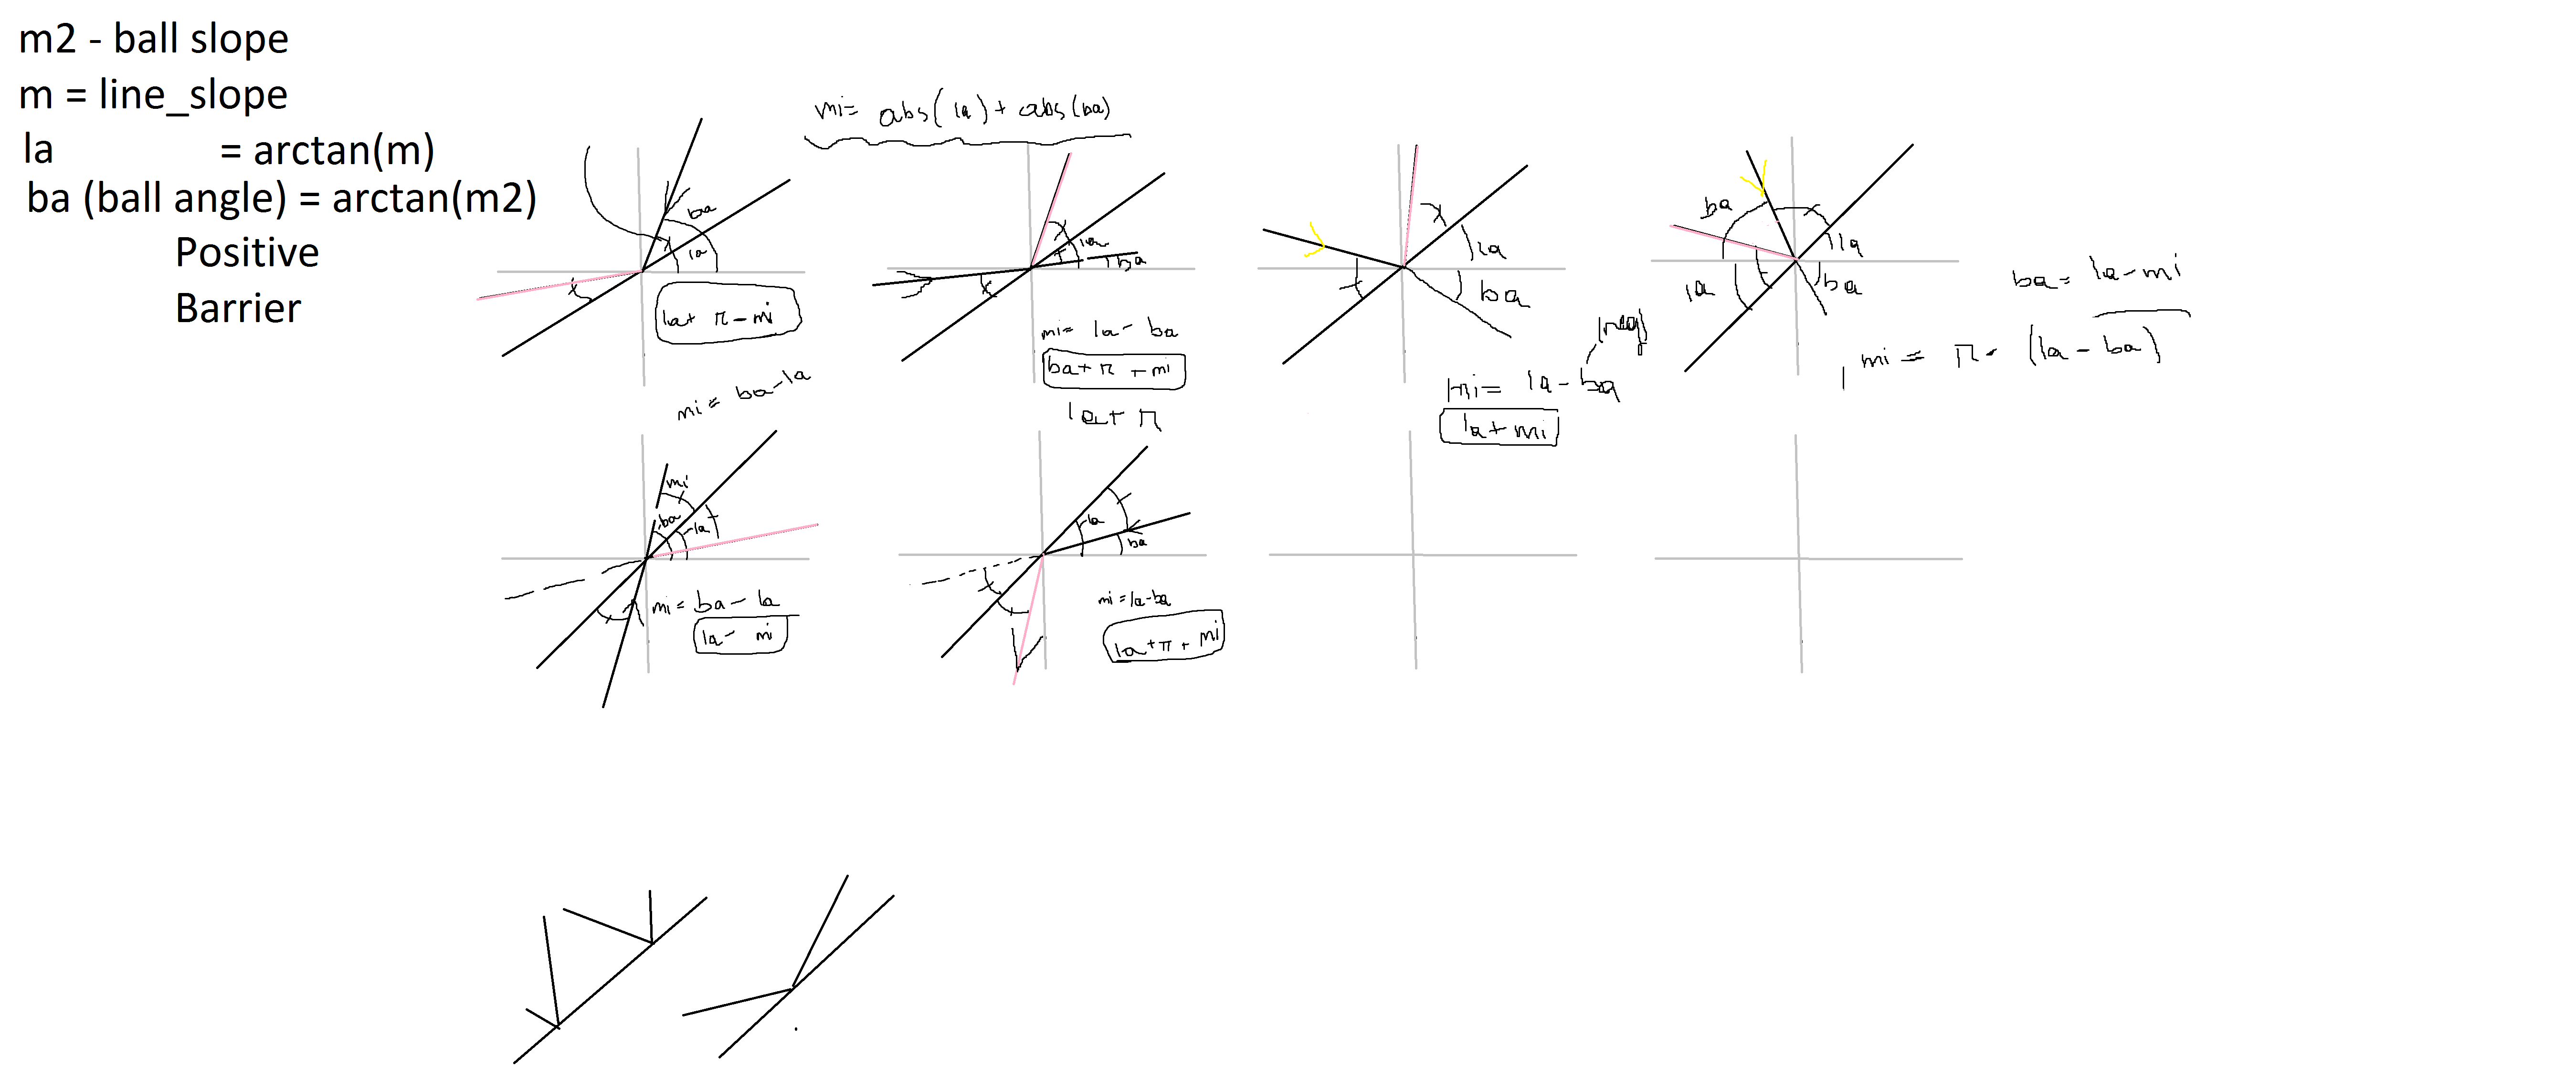 m2 - ball slope
m = line_slope
la = arctan(m)
ba (ball angle) = arctan(m2)
Positive
Barrier
mi= abs(la)+abs(ba)
ba
la
la+ π-mi
mi= ba-la
la
ba
mi= la- ba
ba+π +mi
la+ π
la
ba
(neg)
mi= la-ba
la+mi
ba
la
la
ba
ba= la-mi
mi = π- (la-ba)
mi
ba
la
mi= ba- la
la- mi
la
ba
mi=la-ba
la+π+mi